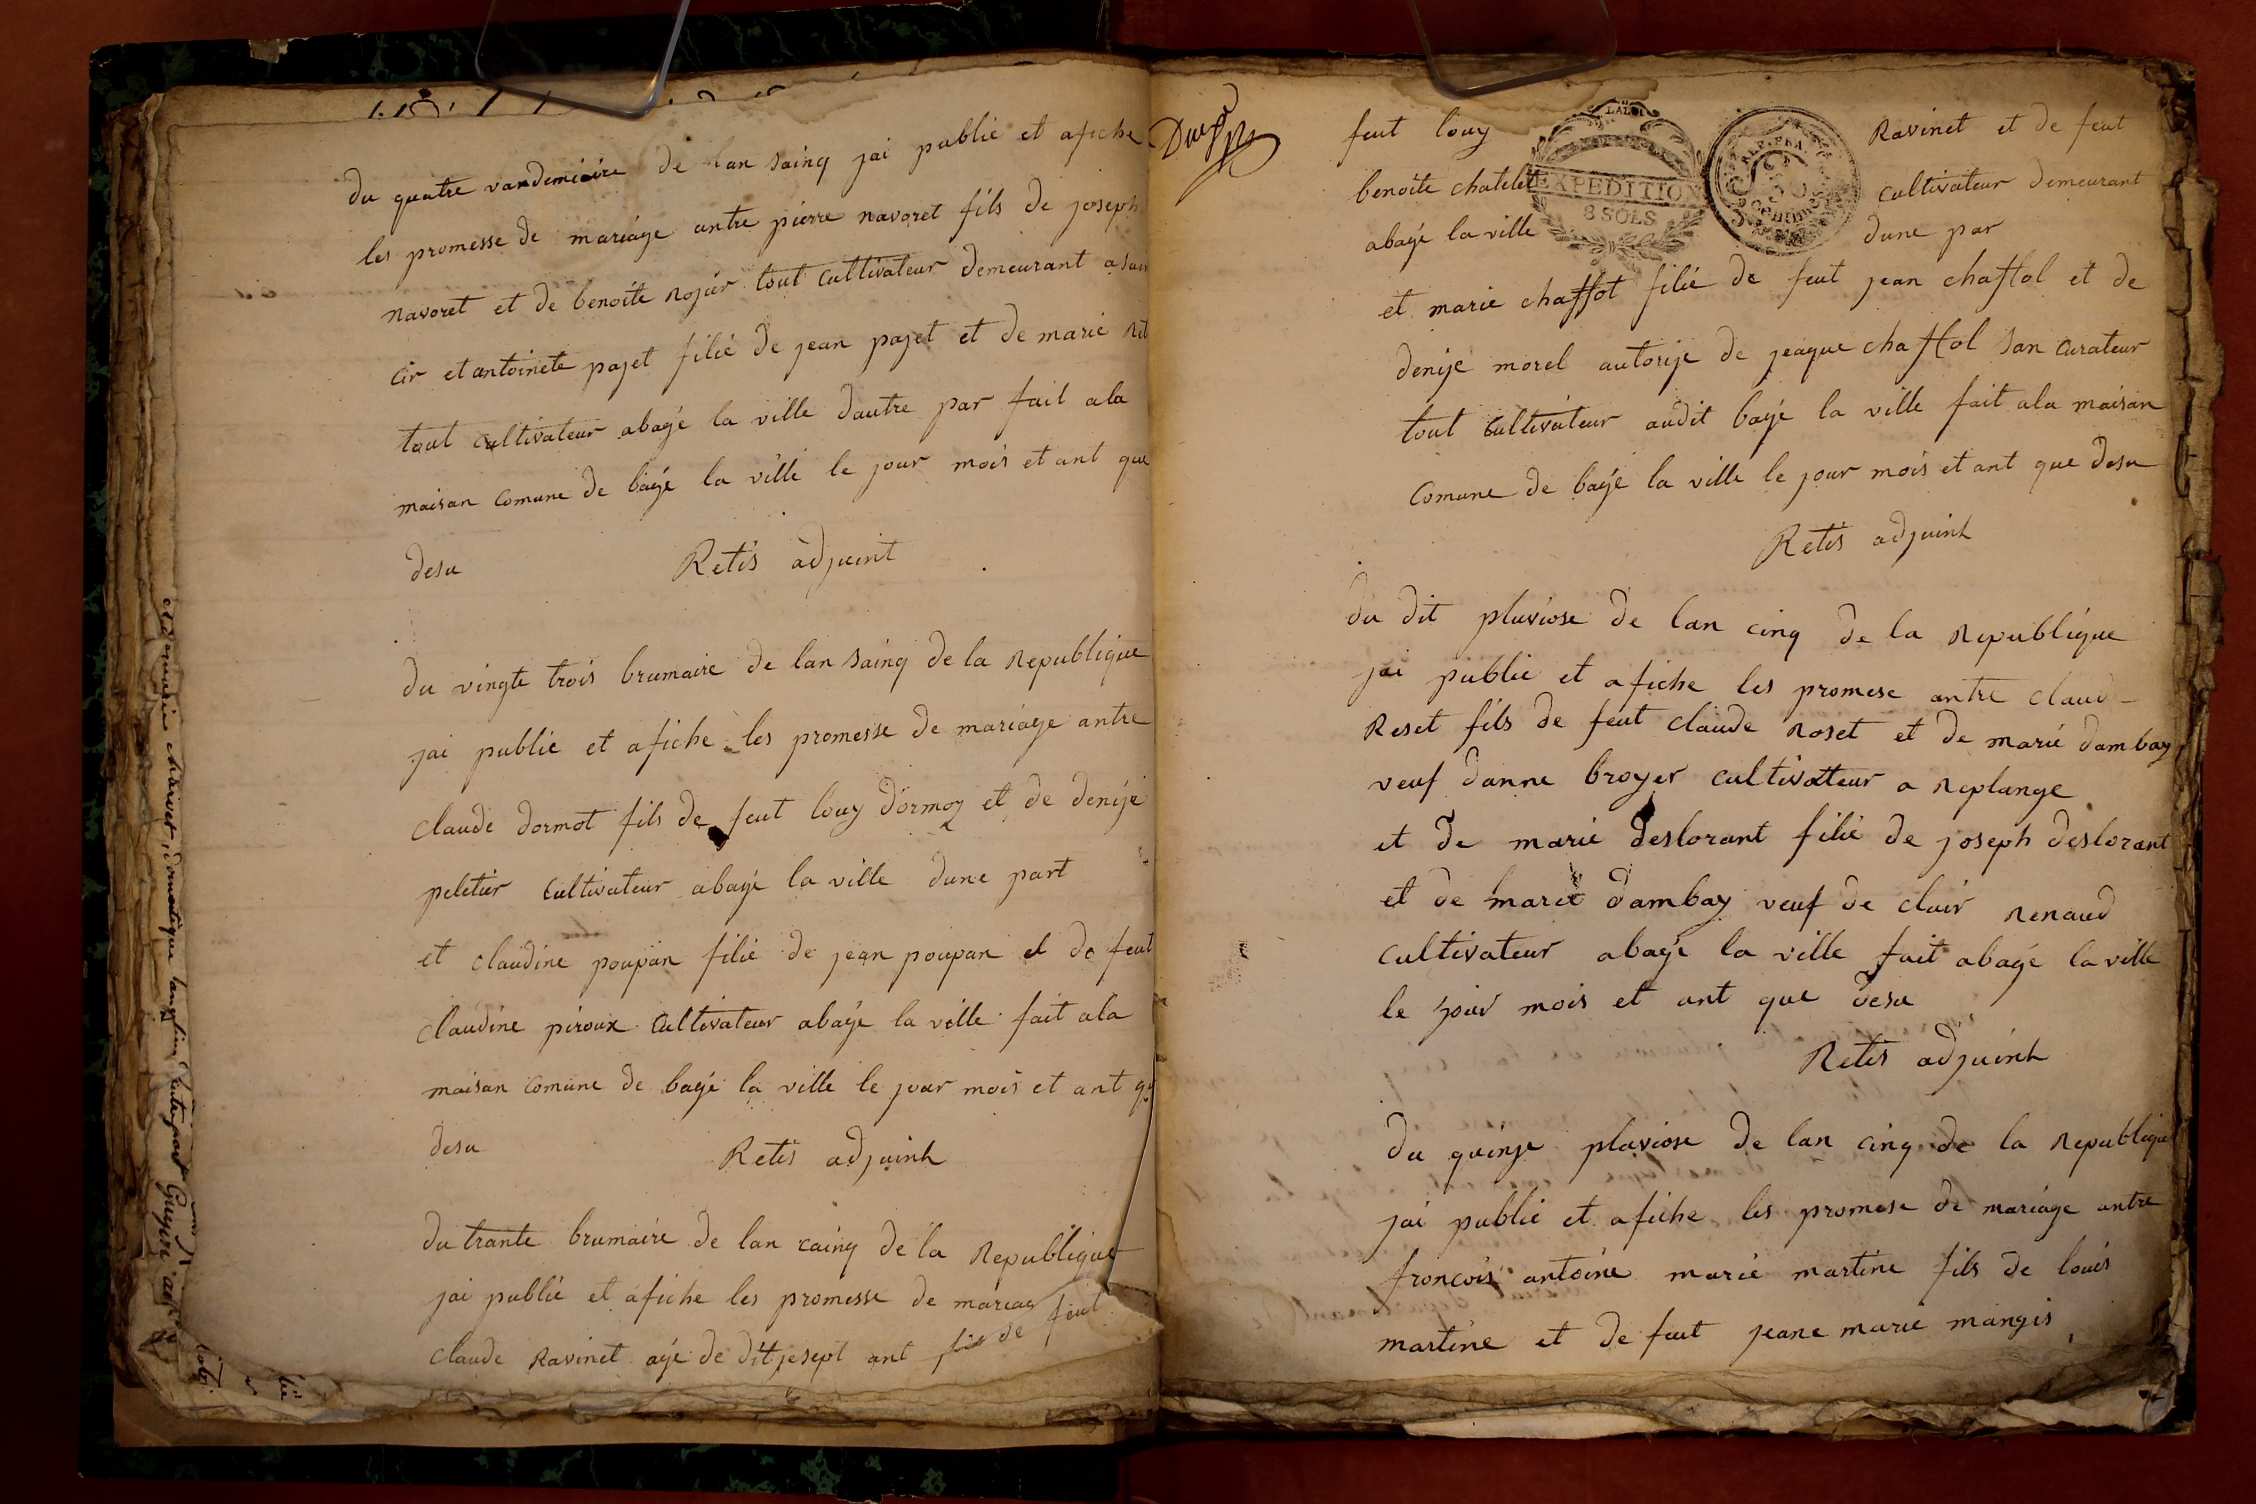 du quatre vandemiaire de lan sainq jai publié et afiche
les promesse de mariage antre pierre navoret fils de joseph
navoret et de benoite rojier tout cultivateur demeurant a sain
cir et antoinete pajet filie de jean pajet et de marie
tout cultivateur abagé la ville dautre par fait ala
maisan comune de bagé la ville le jour mois et ant que
desu Retis adjuint
du vingte trois brumaire de lan sainq de la Republique
jai publié et afiche les promesse de mariage antre
claude dormot fils de feut louy dormoy et de denije
peletier cultivateur abagé la ville dune part
et claudine poupan filie de jean poupan et de feut
claudine piroux cultivateur abagé la ville fait ala
maisan comune de bagé la ville le jour mois et ant qu
desu Retis adjuint
du trante brumaire de lan cainq de la Republique
jai publié et afiche les promesse de mariag
claude Ravinet agé de ditjesept ant fils de feut
feut louy Ravinet et de feut
benoite chatelet cultivateur demeurant
abagé la ville dune par
LA LOI
EXPEDITION
8 SOLS
REP. FRA
50
centimes
et marie chaffot filie de feut jean chaffol et de
denije morel autorije de jeaque chaffol san curateur
tout cultivateur audit bagé la ville fait ala maisan
comune de bagé la ville le jour mois et ant que desu
Retis adjuint
du dit pluviose de lan cinq de la Republique
jai publie et afiche les promese antre claud
Roset fils de feut claude roset et de marie dambay
veuf danne broyer cultivatteur a Replange
et de marie deslorant filie de joseph deslorant
et de marie dambay veuf de clair renaud
cultivateur abagé la ville fait abagé la ville
le jour mois et ant que desu
Retis adjuint
du quinze pluviose de lan cinq de la Republique
jai publié et afiche les promese de mariage antre
francois antoine marie martine fils de louis
martine et de feut jeane marie mangis